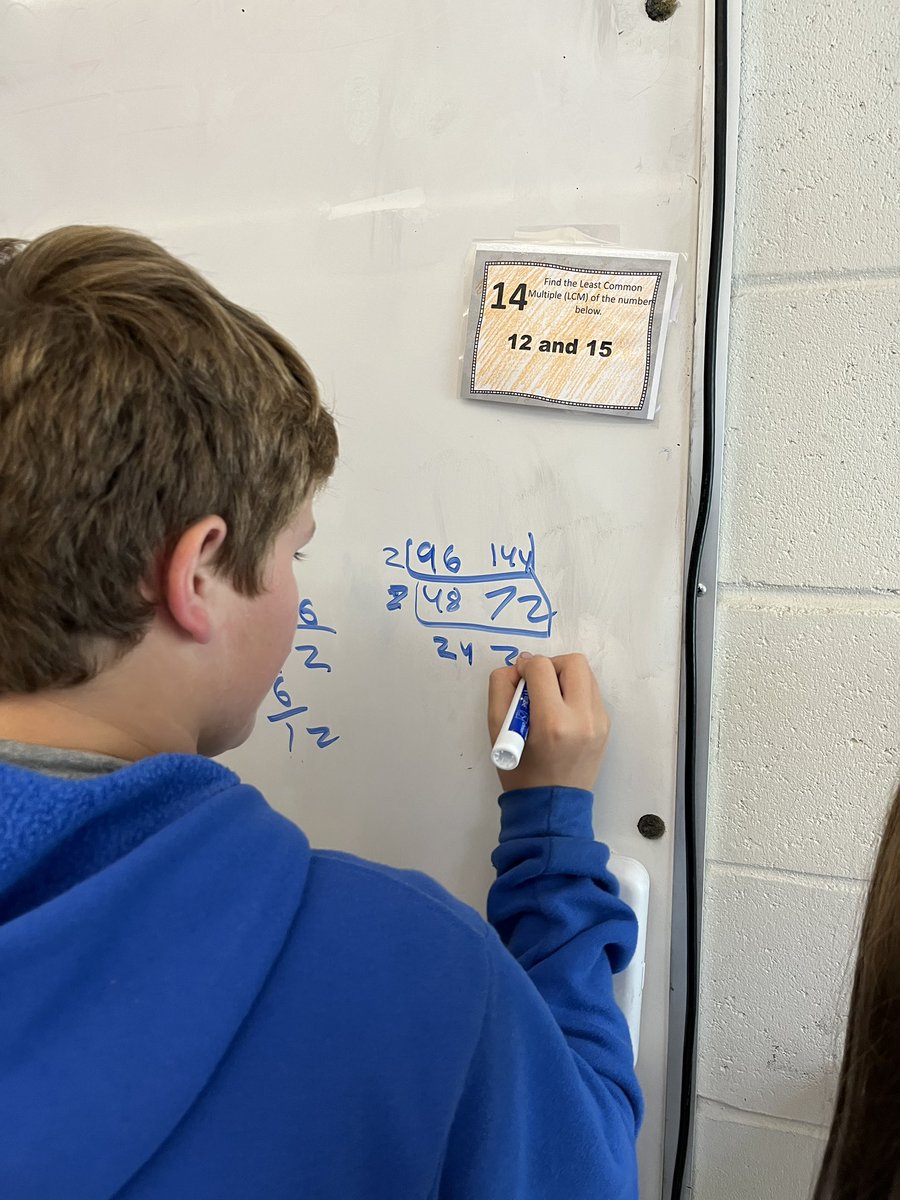 14 Find the Least Common
Multiple (LCM) of the number
below.
12 and 15
2 96 144
2 48 72
24 2
6
2
6
12